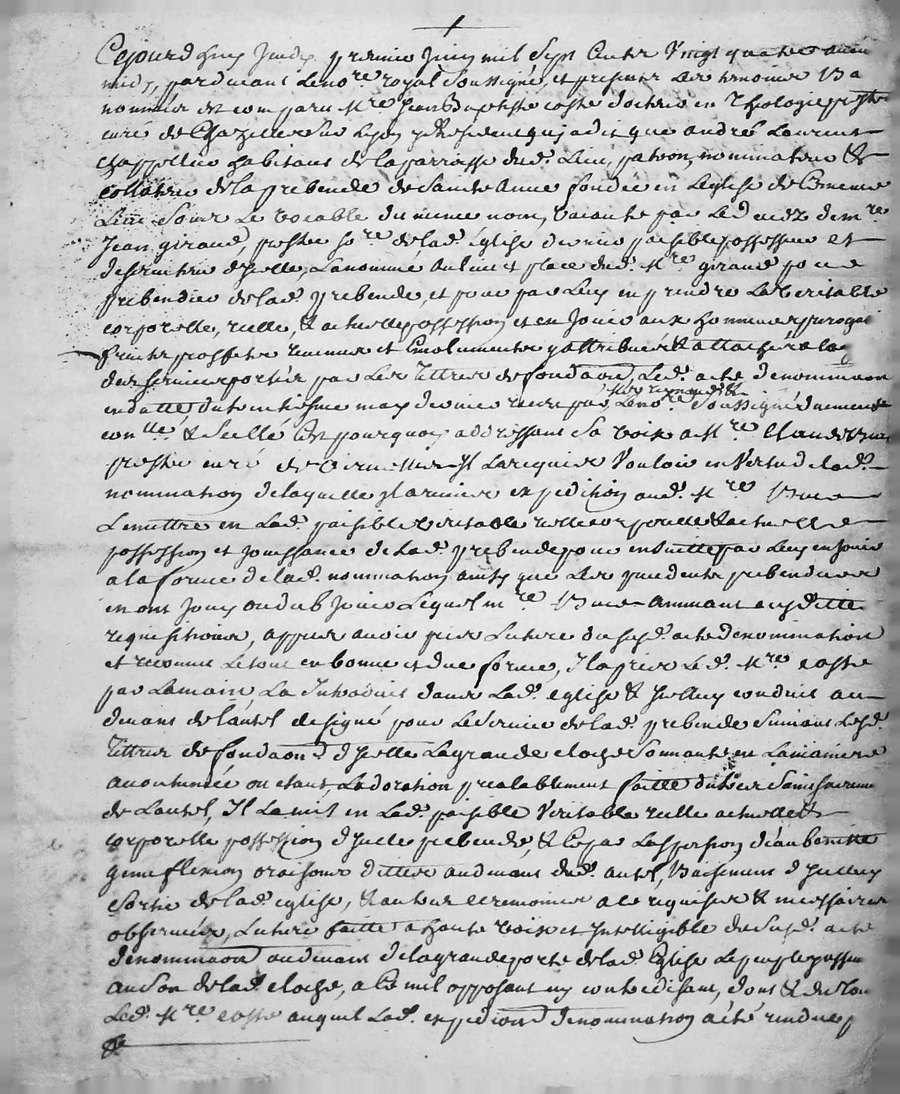 Cejourd'huy Jeudy premier Juin mil Sept Cents Vingt quatre avant
midy, pardevant Le no.re royal Soussigné, et presents Les temoins bas
nommés est comparu M.re Jean Baptiste coste docteur en Theologie prestre
curé de Chazelles sur Lyon y Residant qui a dit que andré Laurent
chappellier habitant de la parroisse dud. Lieu, patron, nominateur &
collateur de la prebende de Sainte Anne fondée en L'eglise de Ce mesme
Lieu Sous Le vocable du mesme nom, vacante par Le deceds de m.re
Jean giraud, prestre so.re de lad. église dernier paisible possesseur et
deserviteur d'Icelle, L'a nommé au lieu et place dud. M.re giraud pour
prebendier de lad. prebende, et pour par Luy en prendre La veritable
corporelle, reelle, & actuelle possession et en Jouir aux honneurs
fruits proffits revenus et Emoluments y attribués & attachés a la
des services portés par Les tittres de fondaon, Led. acte de nommaon
en datte du trentiesme may dernier receu par Le no.re Soussigné
con.llé & Scellé Est pourquoy addressant Sa voix a M.re Claude
prestre curé de Il L'a requier Vouloir en Vertu de lad.
nomination de laquelle Il a remis expedition aud. M.re
Le mettre en Lad. paisible veritable reelle corporelle & actuelle
possession et jouissance de Lad. prebende pour ensuitte par Luy en Jouir
a la forme de lad. nommation ainsy que Les precedents prebendiers
en ont Jouy ou dub Jouir Lequel m.re
requisitions, appres avoir pris Lecture du susd. acte de nommination
et reconnu Le tout en bonne et due forme, Il a pris Led. M.re coste
par La main La Introduit dans Lad. eglise & Icelluy conduit au
devant de L'autel designé pour Le Service de lad. prebende Suivant Lesd.
tittres de fondaon d'Icelle La grande cloche Sonnante en La maniere
accoutumée ou etant, L'adoration prealablement faitte du très Saint Sacrement
de L'autel, Il L'a mit en Lad. paisible Veritable reelle actuelle &
corporelle possession d'Icelle prebende, & Ce par L'aspersion d'eau benitte
genuflexion oraisons dittes au devant dud. autel, baisement d'Icelluy
Sortie de lad. eglise, & autres ceremonies a ce requises & necessaires
observées, Lecture faitte a haute voix et Intelligible du Susd. acte
de nommaon au devant de la grande porte de lad. Eglise Le peuple
au Son de lad. cloche, a Ce nul opposant ny contredisant, dont & du tout
Led. M.re coste auquel Lad. expedion de nommination a été rendue
&